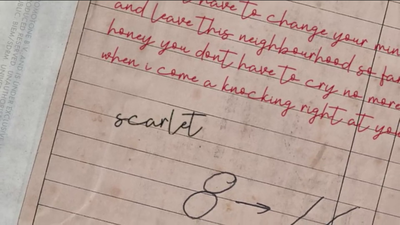 have to change your min
and leave this neighbourhood so fa
honey you dont have to cry no more
when i come a knocking right at you
scarlet
8 →